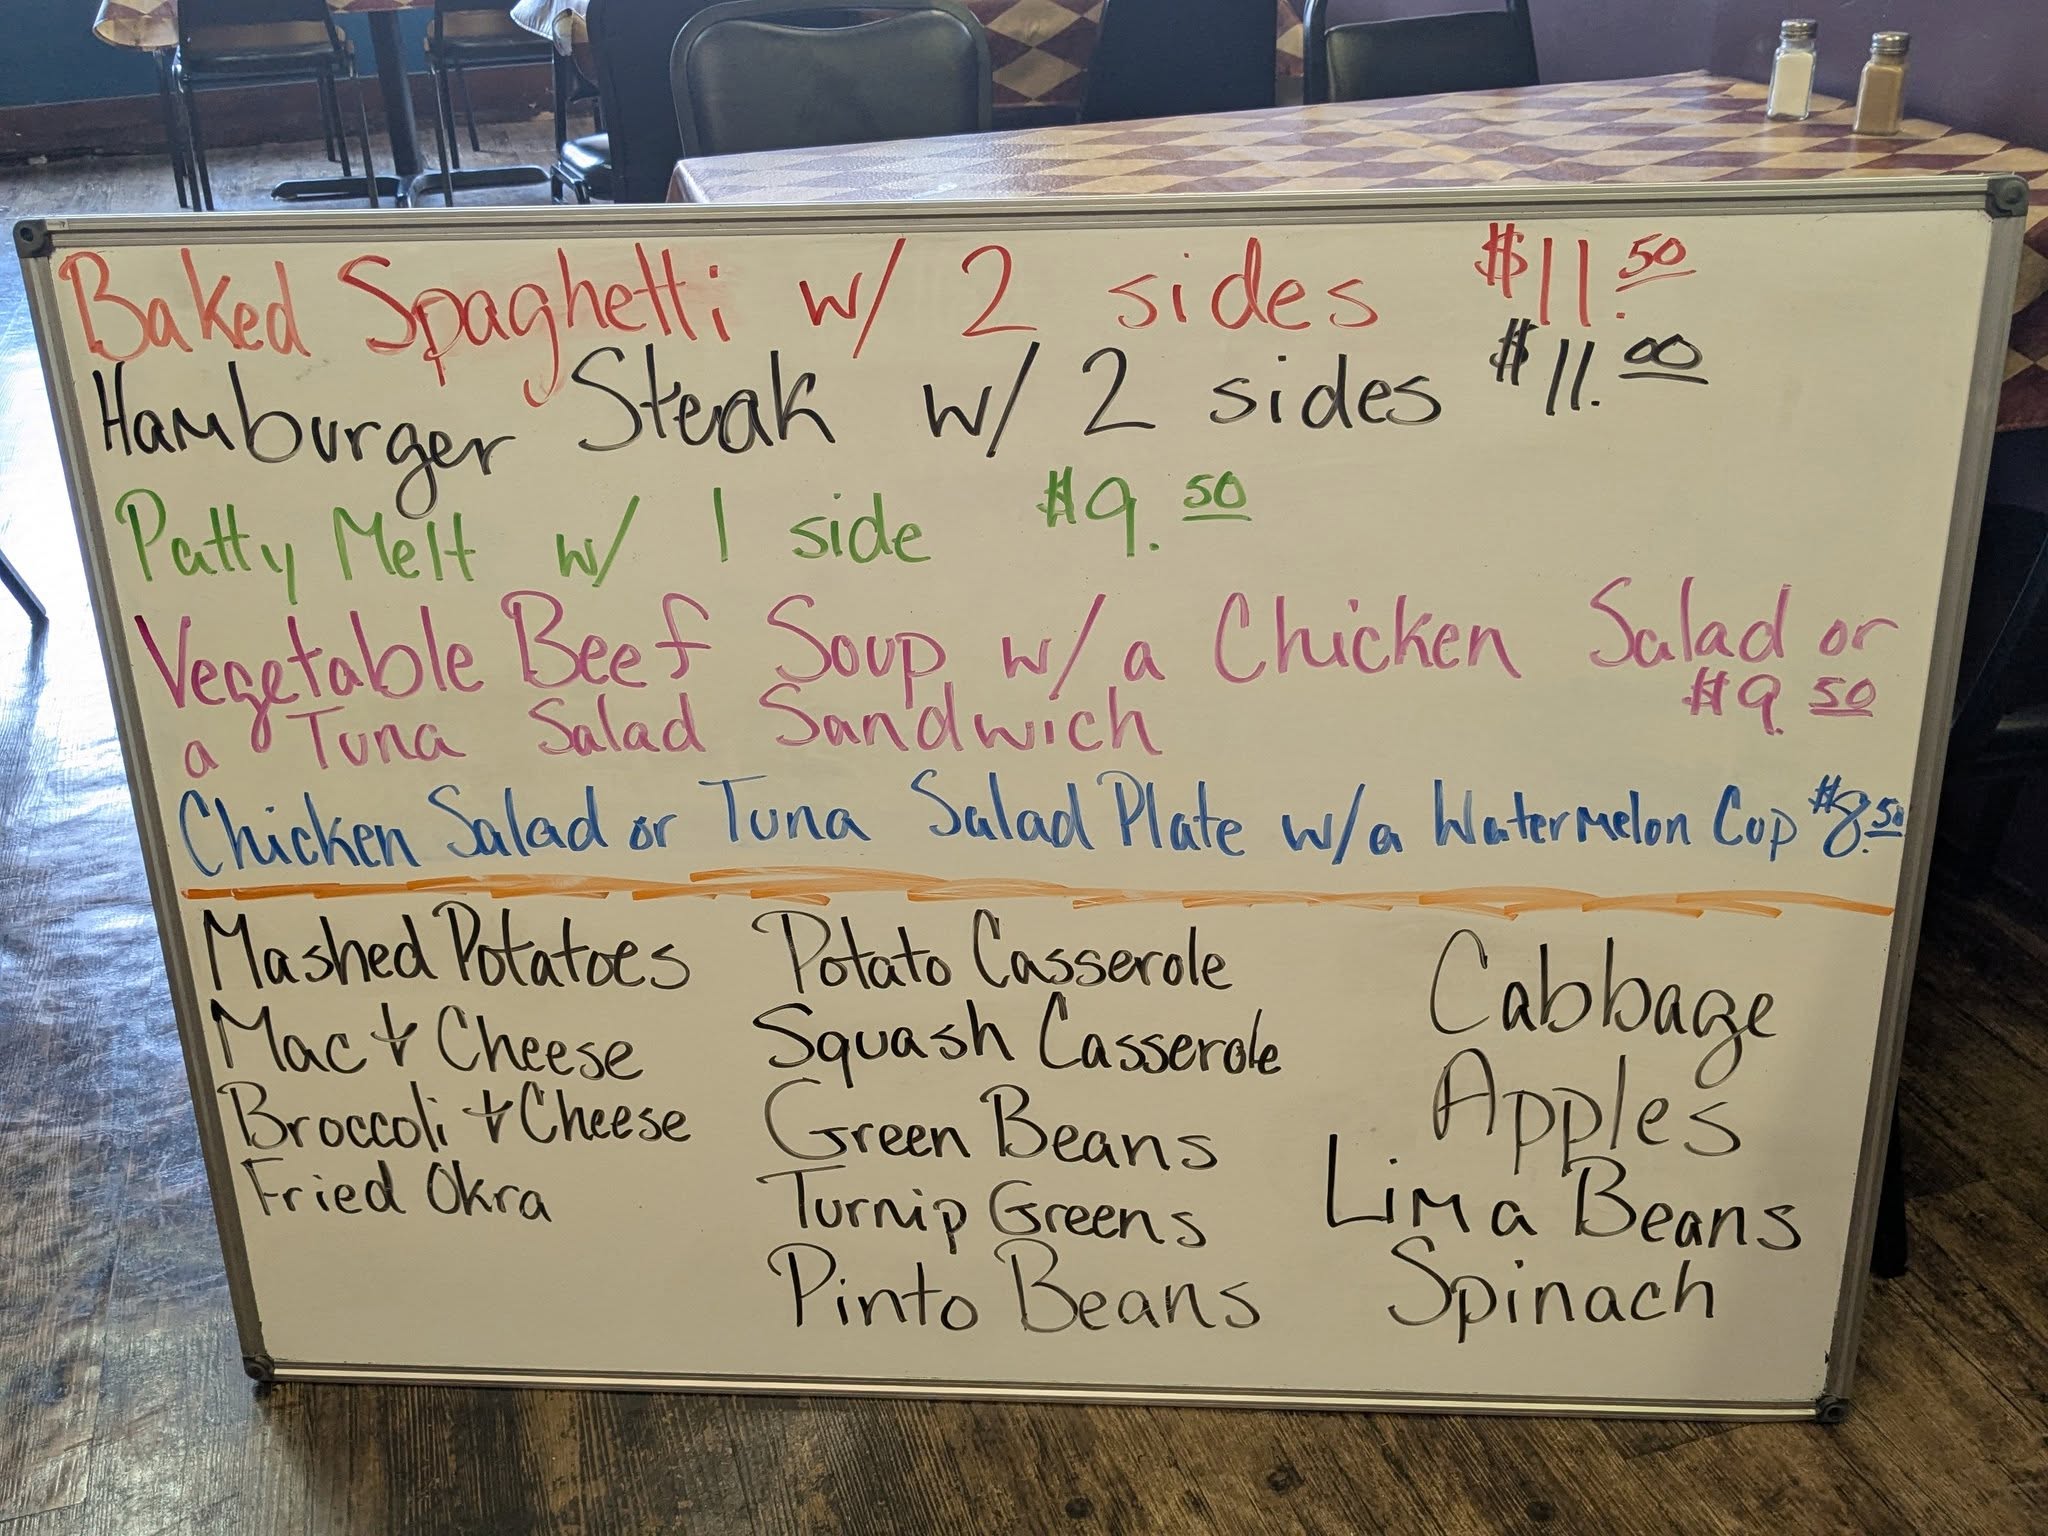 Baked Spaghetti w/ 2 sides $11.50
Hamburger Steak w/ 2 sides $11.00
Patty Melt w/ 1 side $9.50
Vegetable Beef Soup w/a Chicken Salad or
a Tuna Salad Sandwich $9.50
Chicken Salad or Tuna Salad Plate w/a Watermelon Cup $8.50
Mashed Potatoes
Mac & Cheese
Broccoli & Cheese
Fried Okra
Potato Casserole
Squash Casserole
Green Beans
Turnip Greens
Pinto Beans
Cabbage
Apples
Lima Beans
Spinach